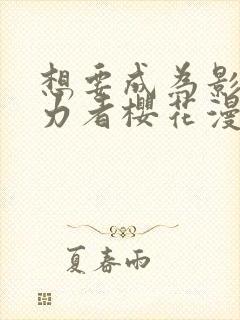 想要成为影
力者樱花漫
夏春雨